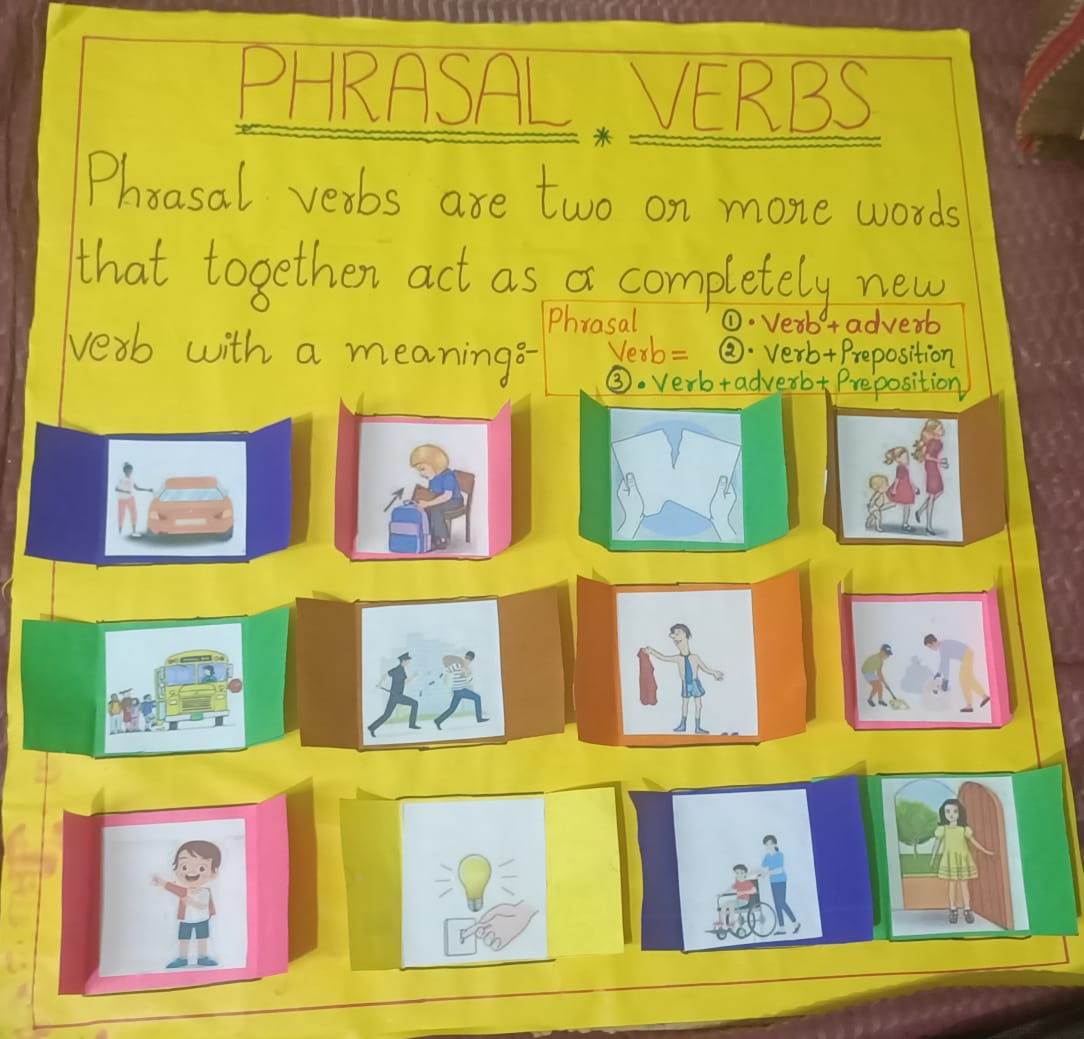 PHRASAL VERBS
Phrasal verbs are two or more words
that together act as a completely new
verb with a meaning:-
Phrasal
Verb =
①• Verb + adverb
②• Verb + Preposition
③• Verb + adverb + Preposition